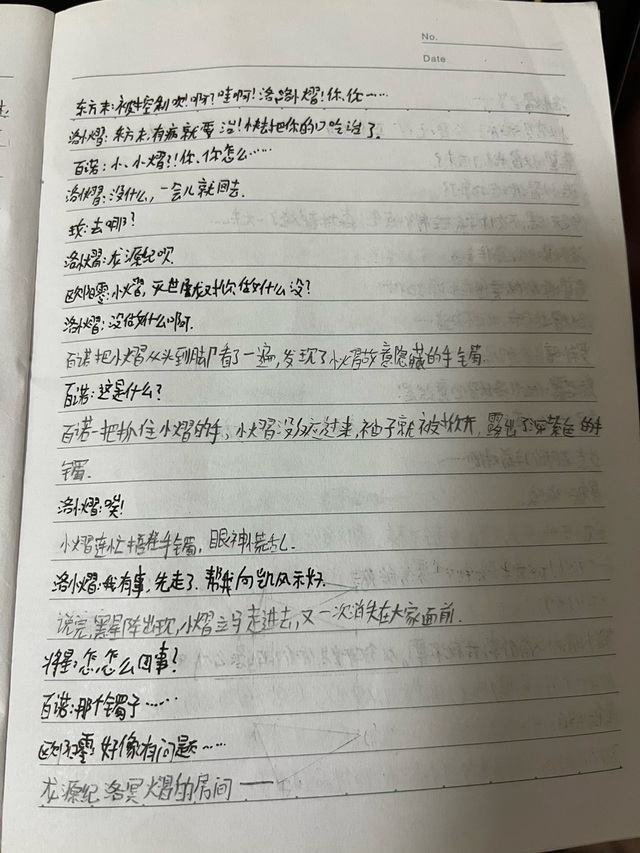 No.
Date
东方末:被控制吹!啊?哇啊!洛小熠!你,你……
洛小熠:东方末,有病就要治!小心把你的口吃治了.
百诺:小、小熠?!你、你怎么……
洛小熠:没什么,一会儿就回去.
玫:去哪?
洛小熠:龙源纪呗.
欧阳零:小熠,灭世屠龙对你做什么没?
洛小熠:没做什么啊.
百诺把小熠从头到脚看了一遍,发现了小熠故意隐藏的手镯.
百诺:这是什么?
百诺一把抓住小熠的手,小熠没反应过来,袖子就被掀开,露出了深紫色的手
镯.
洛小熠:诶!
小熠连忙捂住手镯,眼神慌乱.
洛小熠:我有事,先走了.帮我向凯风示好.
说完黑星阵出现,小熠立马走进去,又一次消失在大家面前.
将星:怎,怎么回事?
百诺:那个镯子……
欧阳零:好像有问题……
龙源纪洛冥熠的房间——